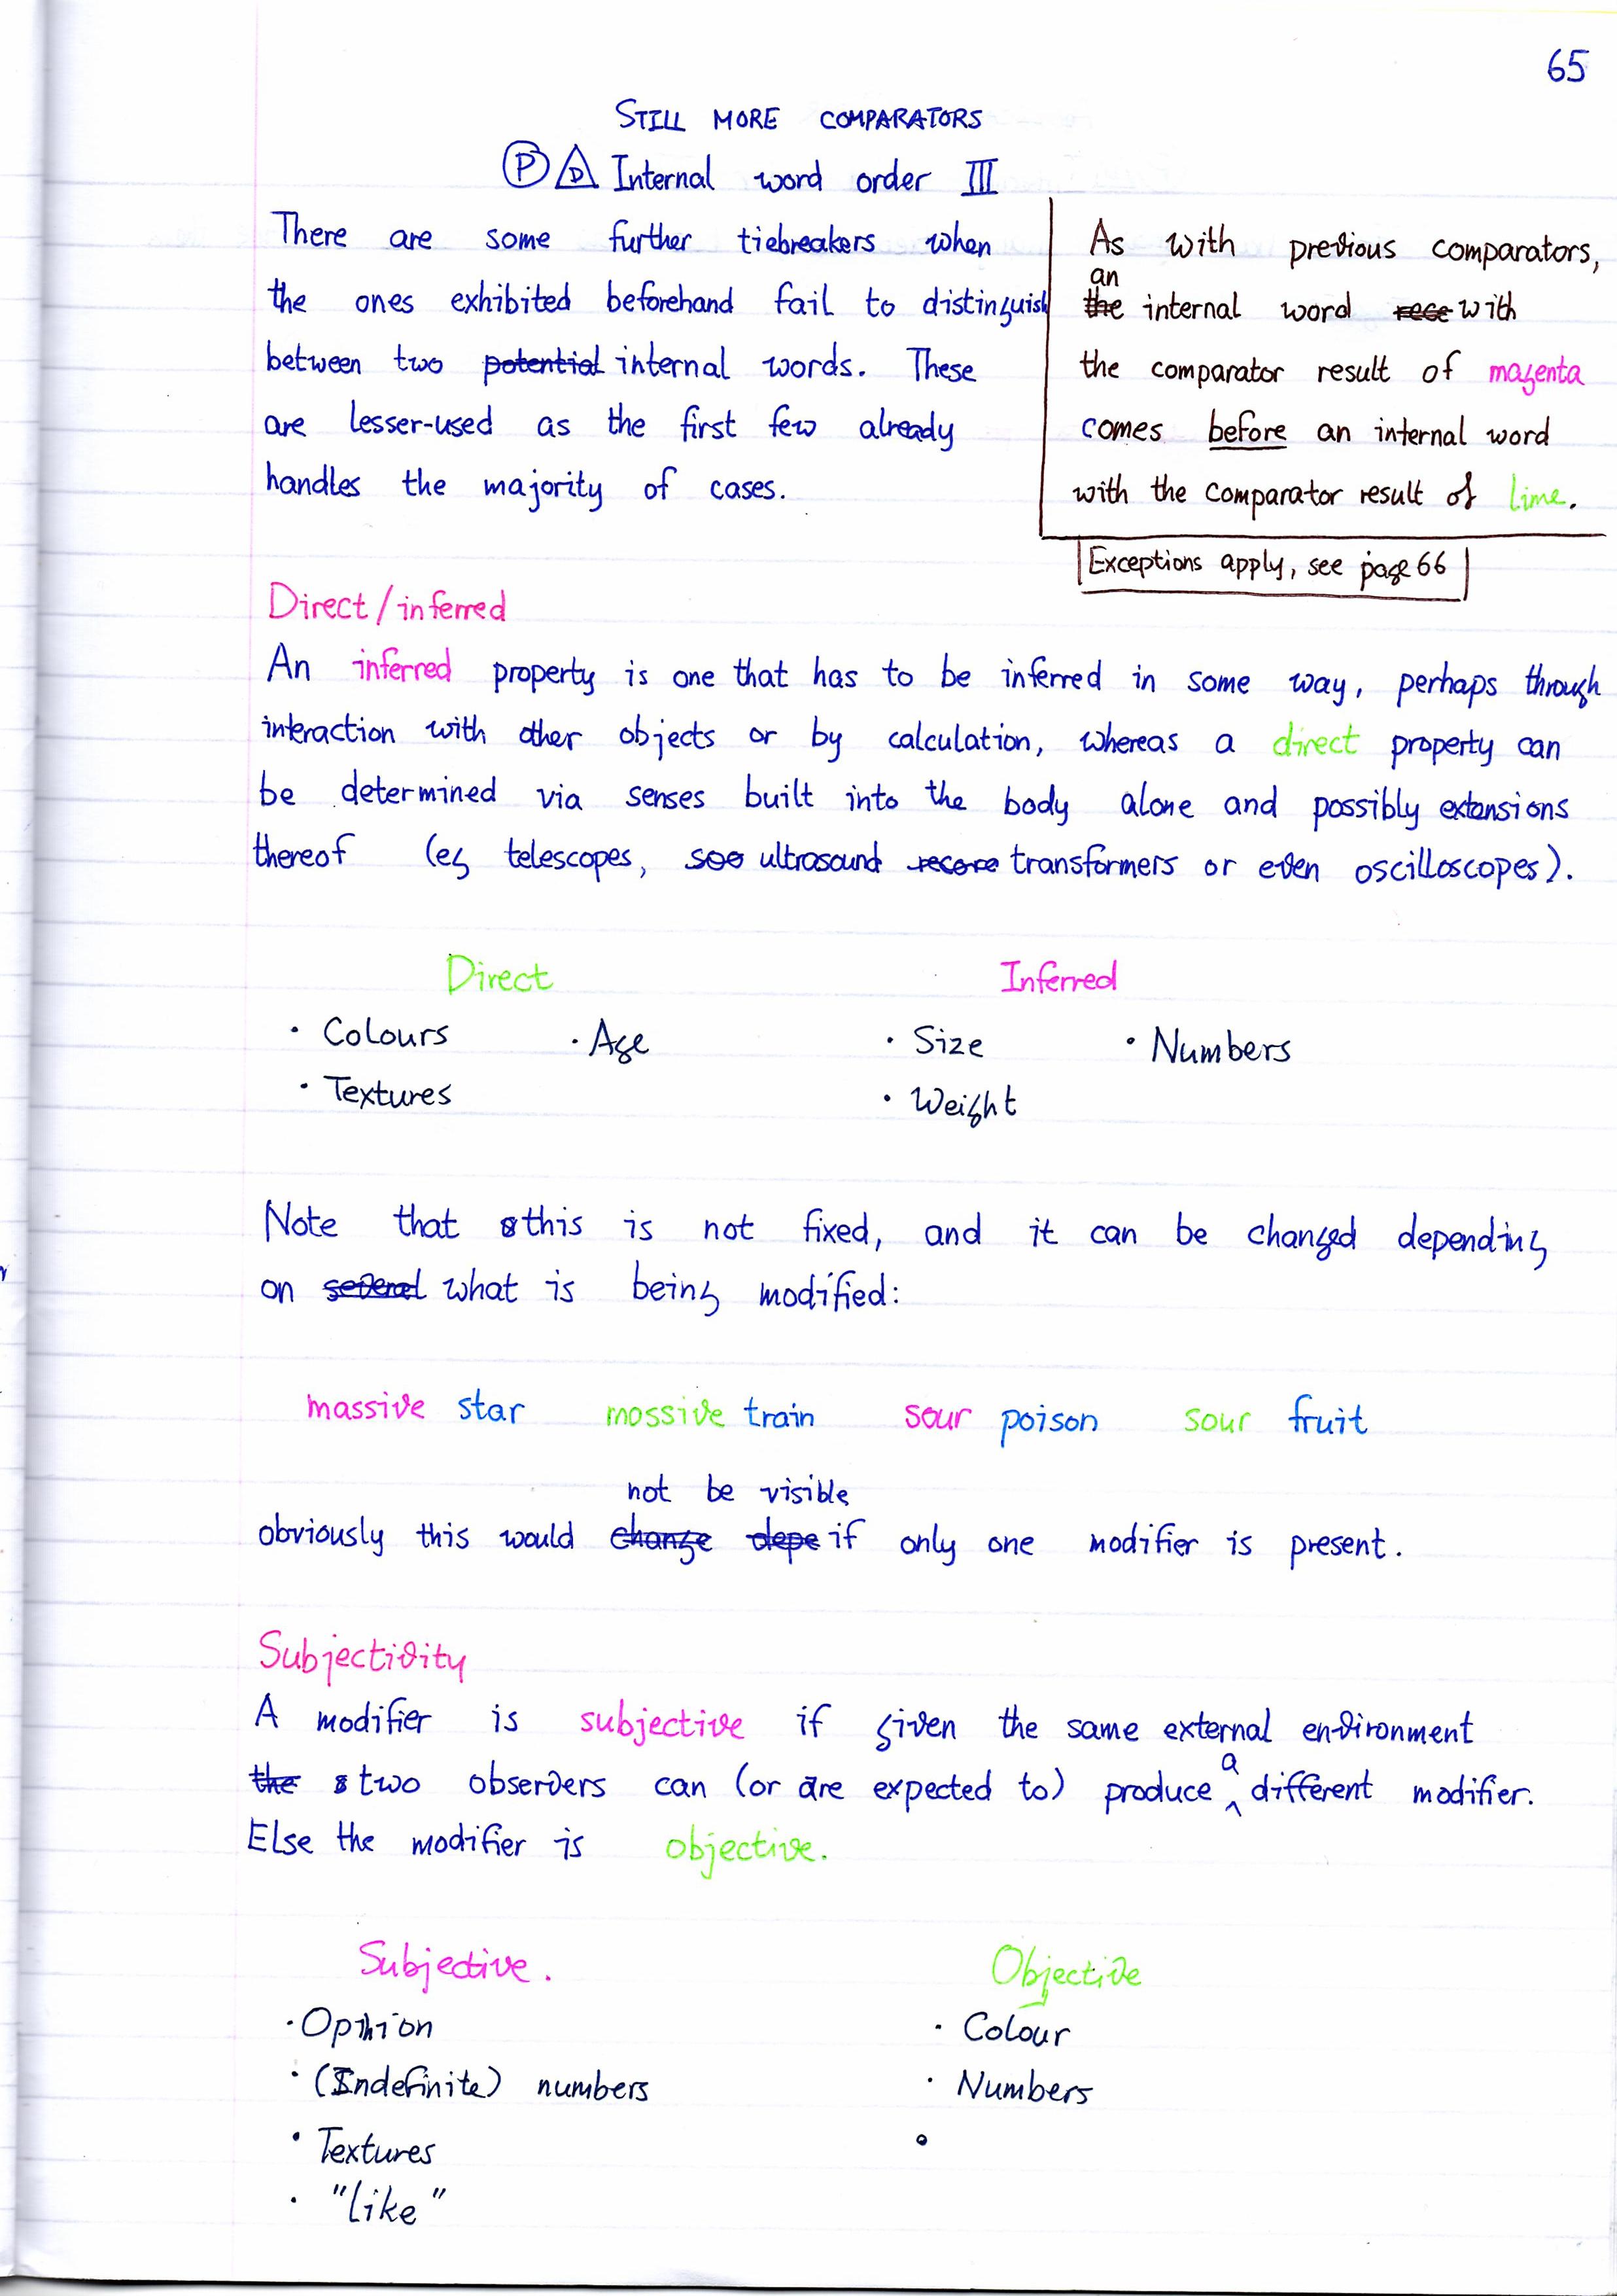 65
STILL MORE COMPARATORS
P D Internal word order III
There are some further tiebreakers when
the ones exhibited beforehand fail to distinguish
between two potential internal words. These
are lesser-used as the first few already
handles the majority of cases.
As with previous comparators,
an
the internal word rece with
the comparator result of magenta
comes before an internal word
with the comparator result of lime.
Exceptions apply, see page 66
Direct/inferred
An inferred property is one that has to be inferred in some way, perhaps through
interaction with other objects or by calculation, whereas a direct property can
be determined via senses built into the body alone and possibly extensions
thereof (eg telescopes, soo ultrasound recore transformers or even oscilloscopes).
Direct Inferred
• Colours • Age • Size • Numbers
• Textures • Weight
Note that this is not fixed, and it can be changed depending
on several what is being modified:
massive star mossive train sour poison sour fruit
not be visible
obviously this would change depe if only one modifier is present.
Subjectivity
A modifier is subjective if given the same external environment
a
the two observers can (or are expected to) produce ^ different modifier.
Else the modifier is objective.
Subjective. Objective
• Opinion • Colour
• (Indefinite) numbers • Numbers
• Textures •
• "like"